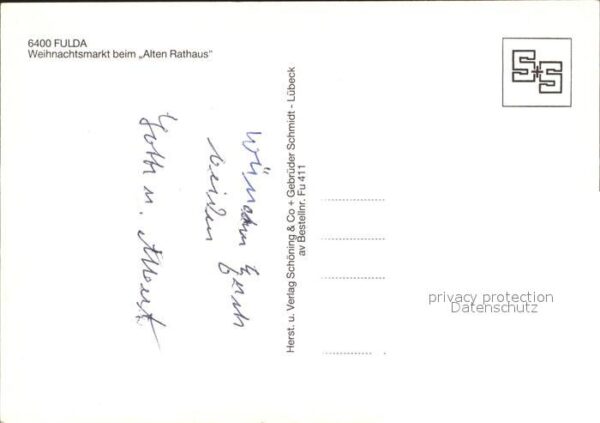 6400 FULDA
Weihnachtsmarkt beim „Alten Rathaus"
S+S
Herst. u. Verlag Schöning & Co + Gebrüder Schmidt - Lübeck
av Bestellnr. Fu 411
wünschen Euch
beiden
u. Albert
privacy protection
Datenschutz